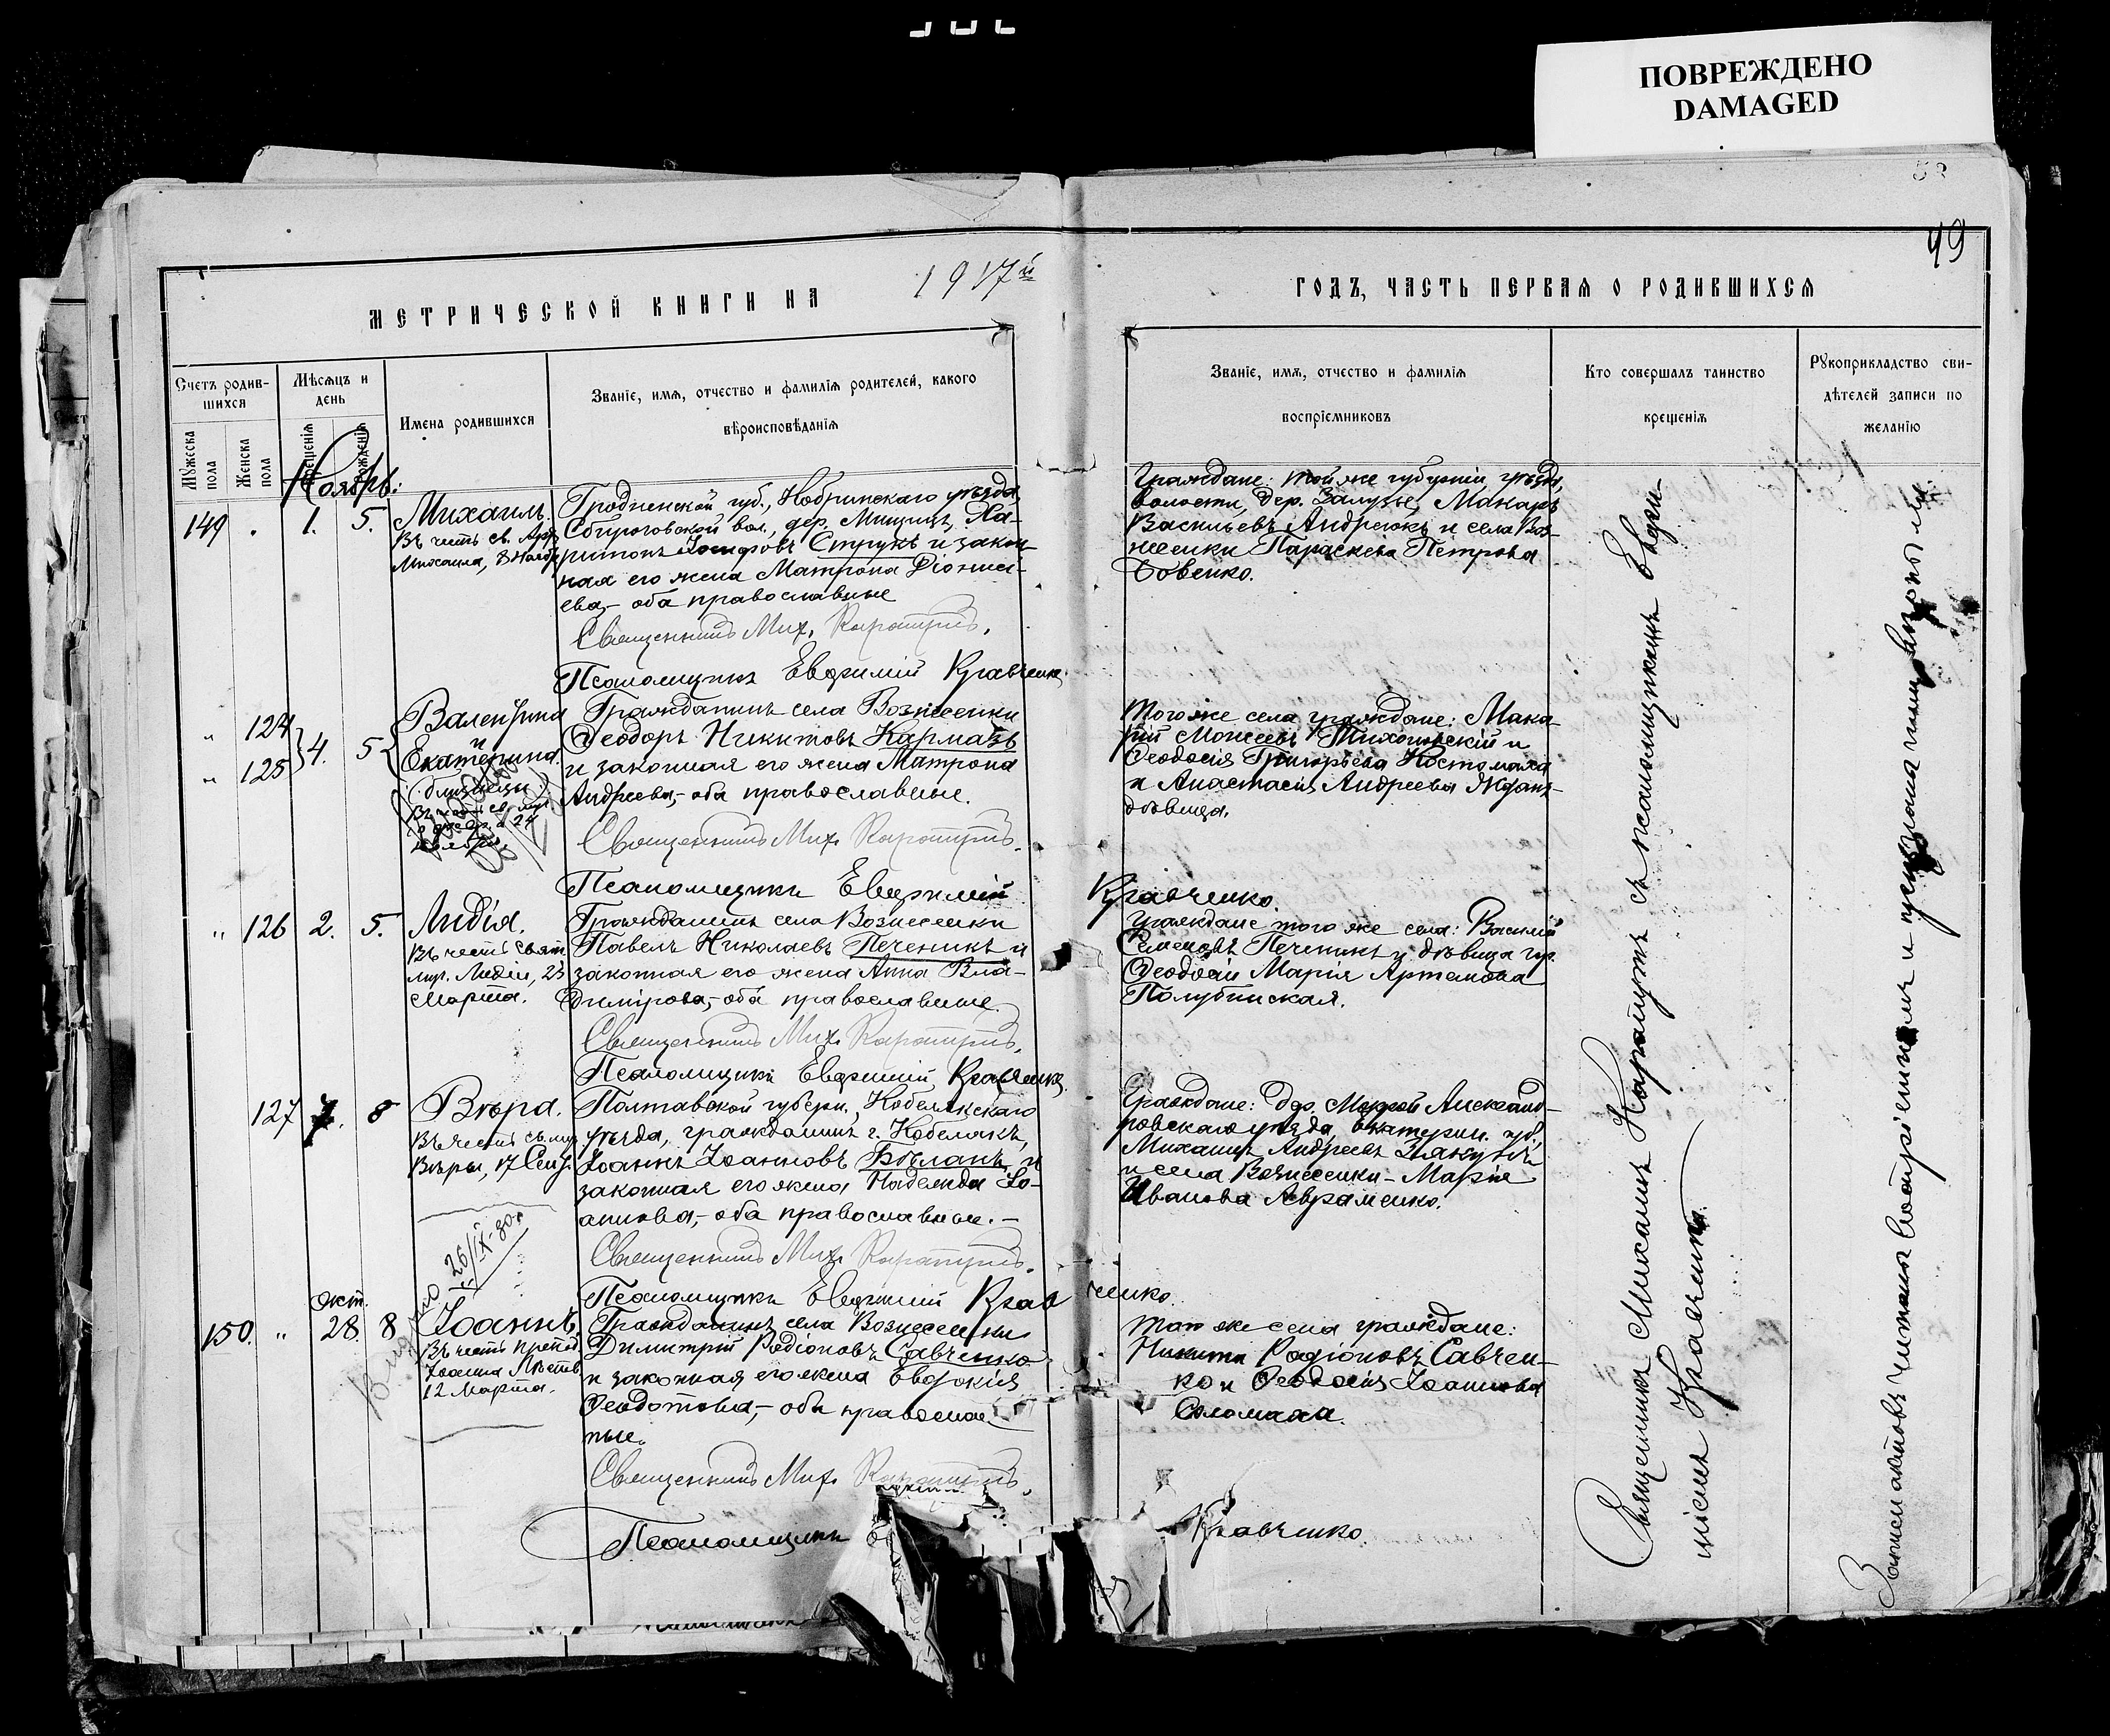 ПОВРЕЖДЕНО
DAMAGED
49
МЕТРИЧЕСКОЙ КНИГИ НА 1917й
ГОДЪ, ЧАСТЬ ПЕРВАЯ О РОДИВШИХСЯ
Счетъ родив-
шихся
Мужеска пола
Женска пола
Мѣсяцъ и
день
крещенія
рожденія
Имена родившихся
Званіе, имя, отчество и фамилія родителей, какого
вѣроисповѣданія
Званіе, имя, отчество и фамилія
воспріемниковъ
Кто совершалъ таинство
крещенія
Рукоприкладство сви-
дѣтелей записи по
желанію
Ноябрь:
149 1. 5.
Михаилъ.
Въ честь св. Арх.
Михаила, 8 Ноябр.
Гродненской губ., Кобринскаго уѣзда,
Сбироговской вол., дер. Мищицъ, Ха-
ритонъ Іосифовъ Струкъ и закон-
ная его жена Матрона Діониси-
ева,- оба православные
Священникъ Мих. Карапутъ.
Псаломщикъ Евфимій Кравченко.
Граждане: той же губерніи, уѣзда,
волости, дер. Залузье, Макаръ
Васильевъ Андреюкъ и села Воз-
несенки Параскева Петрова
Вовенко.
" 124
" 125 4. 5
Валентина
и
Екатерина.
(близнецы)
Гражданинъ села Вознесенки
Ѳеодоръ Никитовъ Кармазь
и законная его жена Матрона
Андреева,- оба православные.
Священникъ Мих. Карапутъ.
Псаломщикъ Евфимій Кравченко.
Того же села граждане: Мака-
рій Моисеевъ Тихоновскій и
Ѳеодосія Григорьева Костомаха
и Анастасія Андреева Жданъ-
дѣвица.
" 126 2. 5.
Лидія.
Въ честь свят.
муч. Лидіи, 23
Марта.
Гражданинъ села Вознесенки
Павелъ Николаевъ Печеникъ и
законная его жена Анна Вла-
димірова,- оба православные.
Священникъ Мих. Карапутъ.
Псаломщикъ Евфимій Кравченко.
Граждане того же села: Василій
Семеновъ Печеникъ и дѣвица гр.
Марія Артемова
Полубинская.
127 7. 8
Вѣра.
Въ честь св. муч.
Вѣры, 17 Сент.
26/IX-80г
Полтавской губерн. Кобелякскаго
уѣзда, гражданинъ г. Кобелякъ,
Іоаннъ Іоанновъ Бѣланъ и
законная его жена Надежда Іо-
аннова,- оба православные.-
Священникъ Мих. Карапутъ.
Псаломщикъ Евфимій Кравченко.
Граждане: дер. Александ-
ровскаго уѣзда, Екатерин. губ.,
Михаилъ Андреевъ
и села Вознесенки - Марія
Иванова Авраменко.
150. " Окт. 28. 8
Іоаннъ.
Въ честь препод.
Іоанна Лѣств.
12 Марта.
Гражданинъ села Вознесенки
Димитрій Родіоновъ Савченко
и законная его жена Евдокія
Ѳеодотова,- оба православ-
ные.
Священникъ Мих. Карапутъ.
Псаломщикъ Кравченко.
Того же села граждане:
Никита Родіоновъ Савчен-
ко и Ѳеодосія Іоаннова
Соломаха.
Священникъ Михаилъ Карапутъ съ псаломщикомъ Евфи-
міемъ Кравченко.